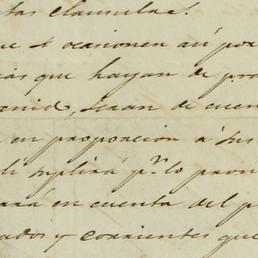 tas clausulas.
ue se ocasionen así por
ias que hayan de pra
enid, seran de cuen
en proporcion á sus
li suplirá pr. lo pron
ará en cuenta del p
ados y corrientes que